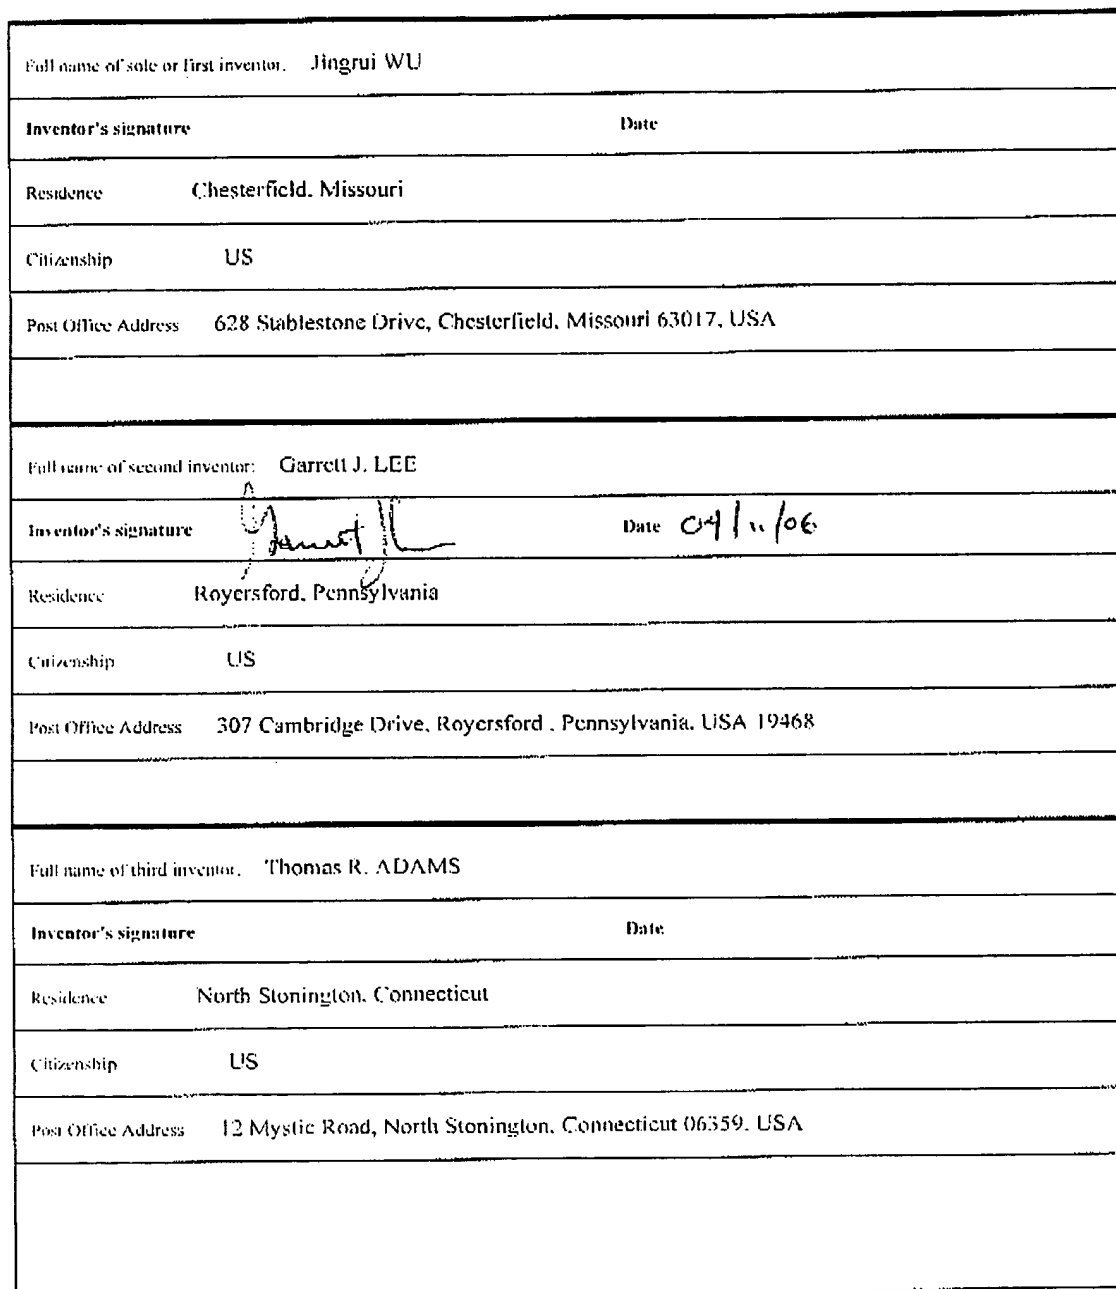 Full name of sole or first inventor. Jingrui WU
Inventor's signature Date
Residence Chesterfield, Missouri
Citizenship US
Post Office Address 628 Stablestone Drive, Chesterfield, Missouri 63017, USA
Full name of second inventor: Garrett J. LEE
Inventor's signature Date 04/11/06
Residence Royersford, Pennsylvania
Citizenship US
Post Office Address 307 Cambridge Drive, Royersford , Pennsylvania. USA 19468
Full name of third inventor. Thomas R. ADAMS
Inventor's signature Date
Residence North Stonington, Connecticut
Citizenship US
Post Office Address 12 Mystic Road, North Stonington, Connecticut 06359. USA